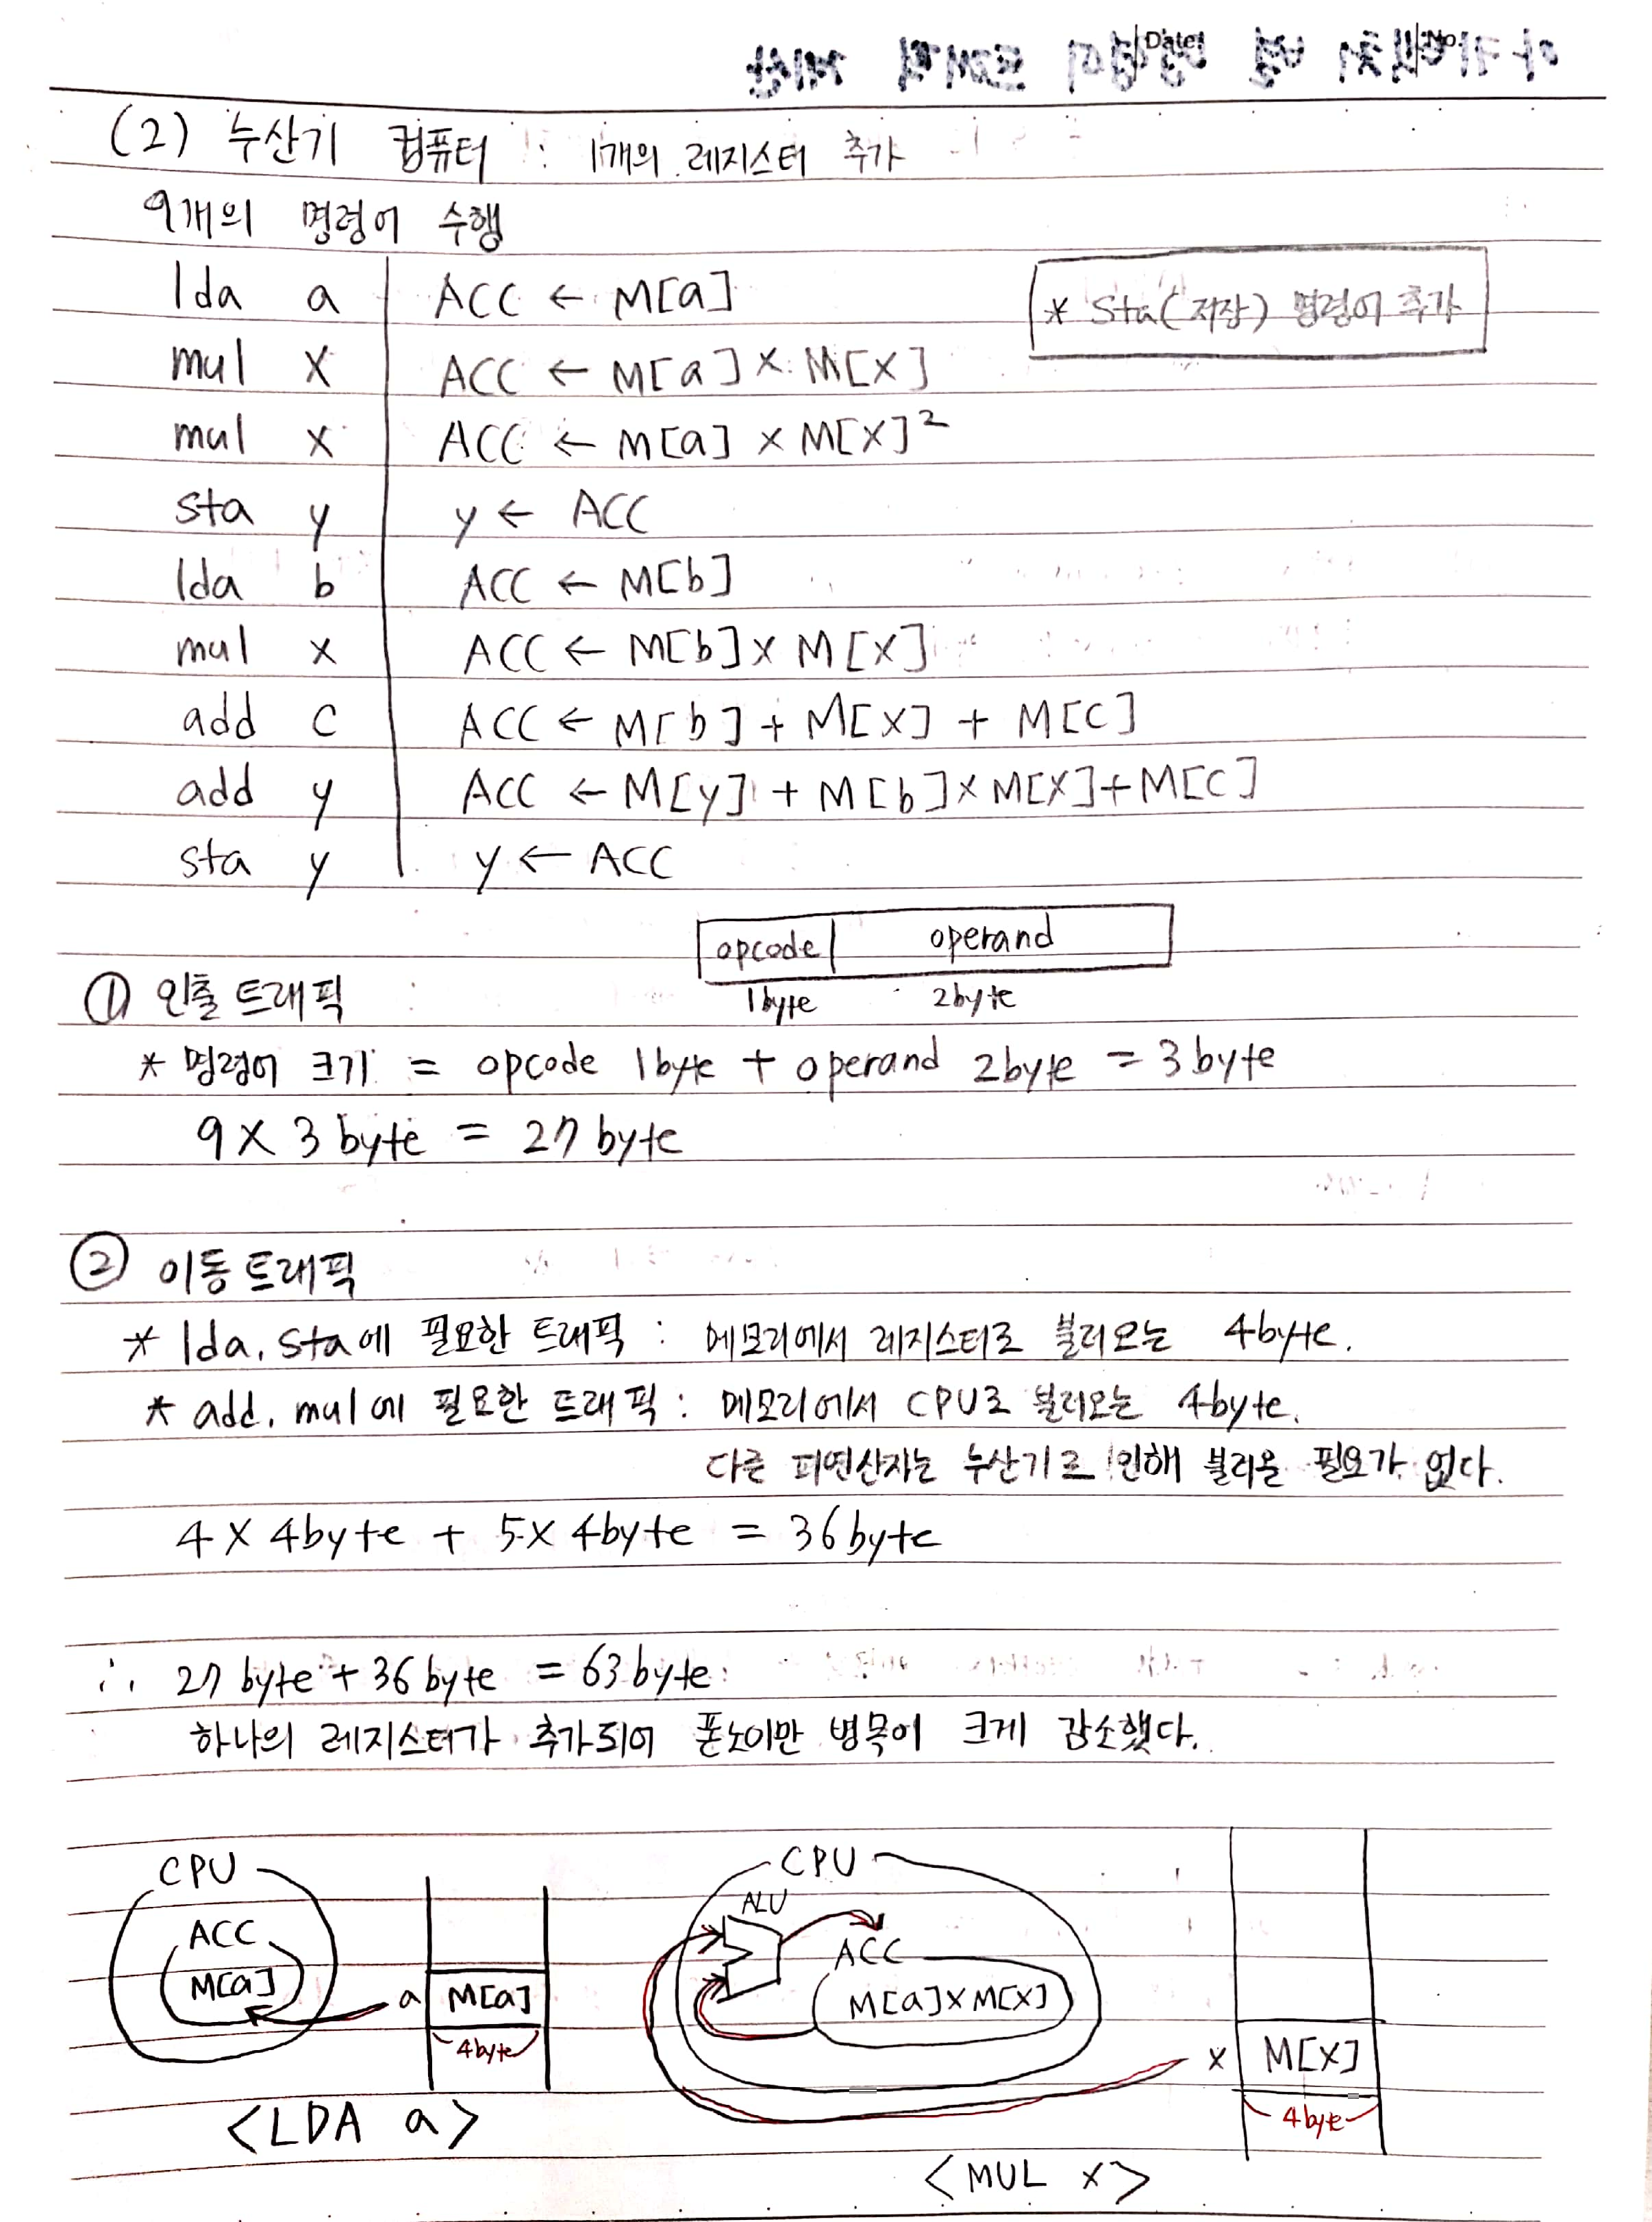 Date No.
(2) 누산기 컴퓨터 : 1개의 레지스터 추가
9개의 명령어 수행
lda a ACC ← M[a]
* Sta(저장) 명령어 추가
mul X ACC ← M[a] × M[X]
mul x ACC ← M[a] × M[X]²
sta y y ← ACC
lda b ACC ← M[b]
mul x ACC ← M[b] × M[X]
add C ACC ← M[b] + M[X] + M[C]
add y ACC ← M[y] + M[b] × M[X] + M[C]
sta y y ← ACC
opcode operand
1byte 2byte
① 인출 트래픽
* 명령어 크기 = opcode 1byte + operand 2byte = 3byte
9 × 3 byte = 27 byte
② 이동 트래픽
* lda, sta에 필요한 트래픽 : 메모리에서 레지스터로 불러오는 4byte.
* add, mul에 필요한 트래픽 : 메모리에서 CPU로 불러오는 4byte.
다른 피연산자는 누산기로 인해 불러올 필요가 없다.
4 × 4byte + 5 × 4byte = 36byte
∴ 27 byte + 36 byte = 63 byte
하나의 레지스터가 추가되어 폰노이만 병목이 크게 감소했다.
CPU
ACC
M[a]
a M[a]
4byte
<LDA a>
CPU
ALU
ACC
M[a]×M[X]
x M[X]
4byte
<MUL x>